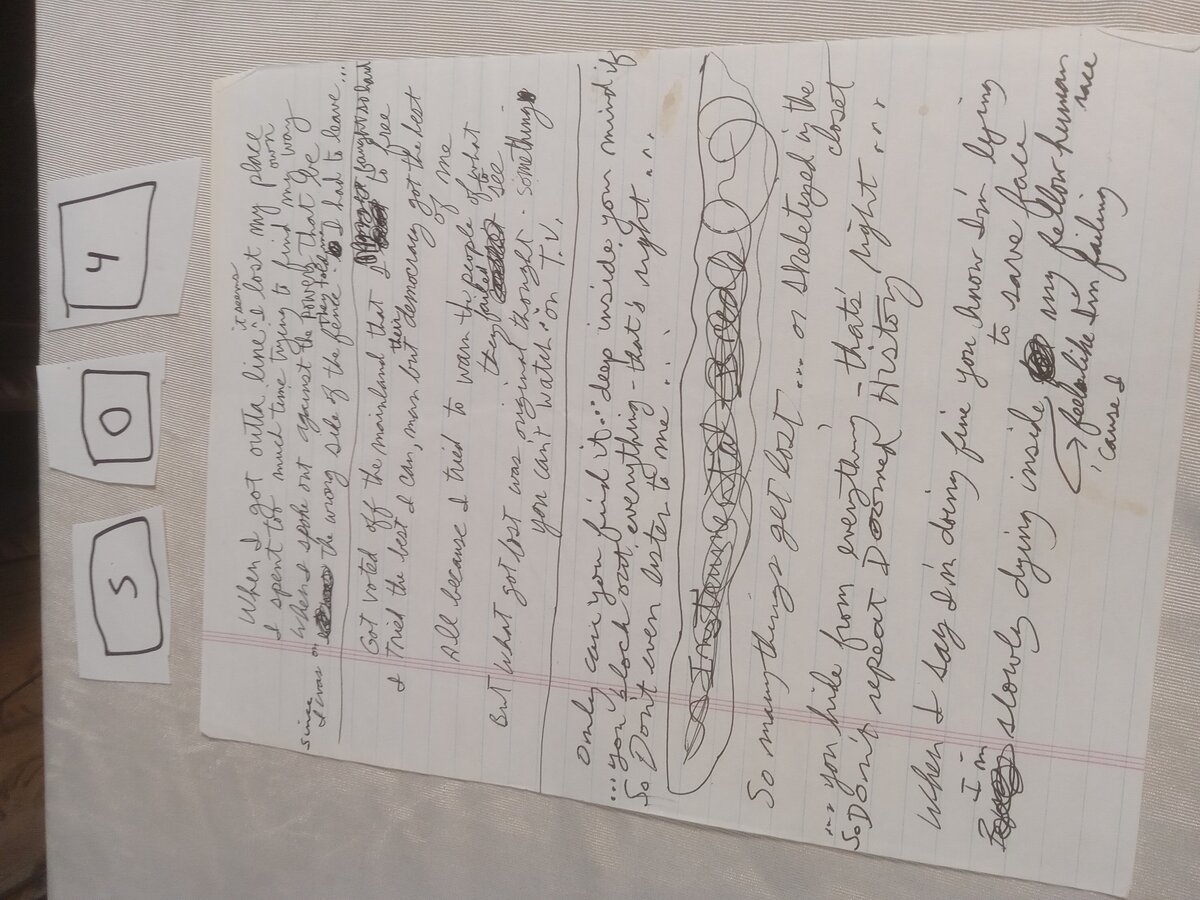 5
0
4
it seems
When I got outta line I'd lost my place
I spent tof much time trying to find my own way
When I spoke out against the powers that be
They told me
Since I was on the wrong side of the fence I had to leave...
Got voted off the mainland that I fought so hard to free
I tried the best I can, man but their democracy got the best of me
All because I tried to warn the people of what they failed to see
But what got lost was original thought - something you can't watch on T.V.
Only can you find it... deep inside your mind if
...you block out everything - that's right...
So Don't even listen to me...
Instrumental Break
So many things get lost.... or skeletized in the closet
... you hide from everything - that's right...
So DON'T repeat Doomed History
When I say I'm doing fine you know I'm lying to save face
I'm slowly dying inside my fellow human race
'cause I feel like I'm failing